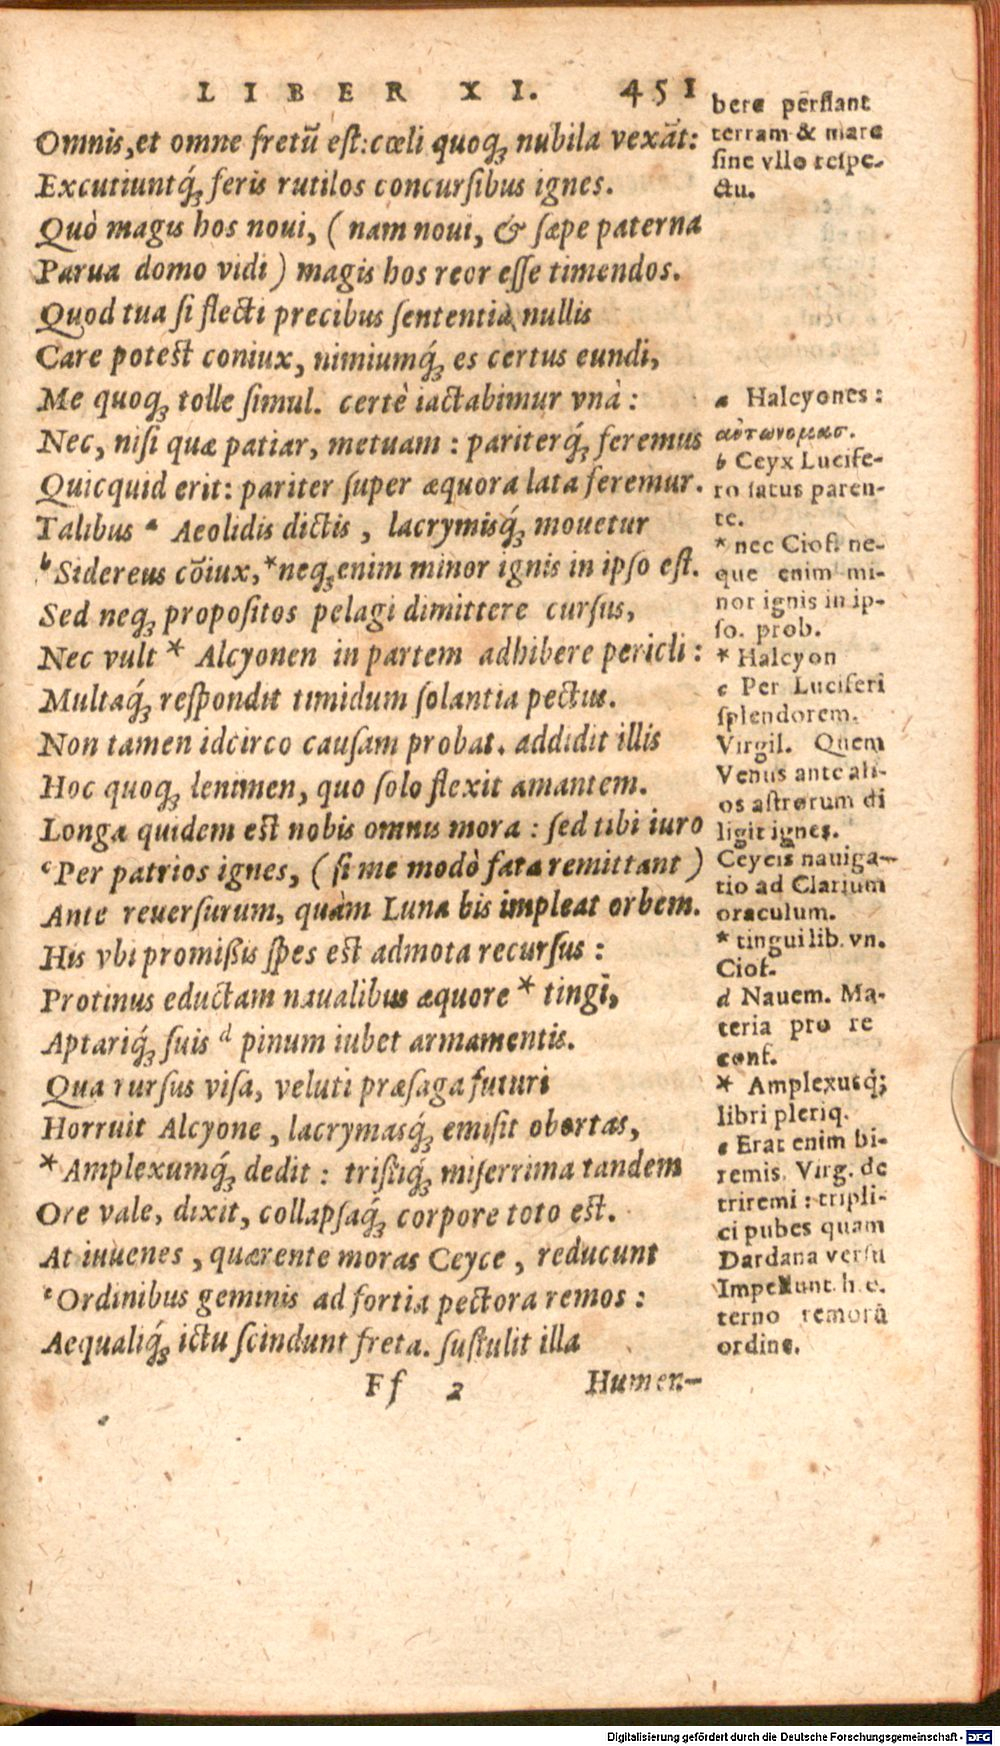 LIBER XI. 451
Omnis, et omne fretũ est: cœli quoq; nubila vexãt:
Excutiuntq́; feris rutilos concursibus ignes.
Quò magis hos noui, ( nam noui, & sæpe paterna
Parua domo vidi ) magis hos reor esse timendos.
Quod tua si flecti precibus sententia nullis
Care potest coniux, nimiumq́; es certus eundi,
Me quoq; tolle simul. certè iactabimur vnà :
Nec, nisi quæ patiar, metuam : pariterq́; feremus
Quicquid erit: pariter super æquora lata feremur.
Talibus a Aeolidis dictis , lacrymisq́; mouetur
b Sidereus cõiux, * neq; enim minor ignis in ipso est.
Sed neq; propositos pelagi dimittere cursus,
Nec vult * Alcyonen in partem adhibere pericli :
Multaq́; respondit timidum solantia pectus.
Non tamen idcirco causam probat. addidit illis
Hoc quoq; lenimen, quo solo flexit amantem.
Longa quidem est nobis omnis mora : sed tibi iuro
c Per patrios ignes, ( si me modò fata remittant )
Ante reuersurum, quàm Luna bis impleat orbem.
His vbi promißis spes est admota recursus :
Protinus eductam naualibus æquore * tingi,
Aptariq́; suis d pinum iubet armamentis.
Qua rursus visa, veluti præsaga futuri
Horruit Alcyone , lacrymasq́; emisit obortas,
* Amplexumq́; dedit : tristiq́; miserrima tandem
Ore vale, dixit, collapsaq́; corpore toto est.
At iuuenes , quærente moras Ceyce , reducunt
e Ordinibus geminis ad fortia pectora remos :
Aequaliq́; ictu scindunt freta. sustulit illa
Ff 2 Humen-
bere perflant
terram & mare
sine vllo respe-
ctu.
a Halcyones :
αὐτωνομασ.
b Ceyx Lucife-
ro satus paren-
te.
* nec Ciof. ne-
que enim mi-
nor ignis in ip-
so. prob.
* Halcyon
c Per Luciferi
splendorem.
Virgil. Quem
Venus ante ali-
os astrorum di
ligit ignes.
Ceycis nauiga-
tio ad Clarium
oraculum.
* tingui lib. vn.
Ciof.
d Nauem. Ma-
teria pro re
conf.
* Amplexusq́;
libri pleriq.
e Erat enim bi-
remis. Virg. de
triremi : tripli-
ci pubes quam
Dardana versu
Impellunt. h. e.
terno remorũ
ordine.
Digitalisierung gefördert durch die Deutsche Forschungsgemeinschaft - DFG